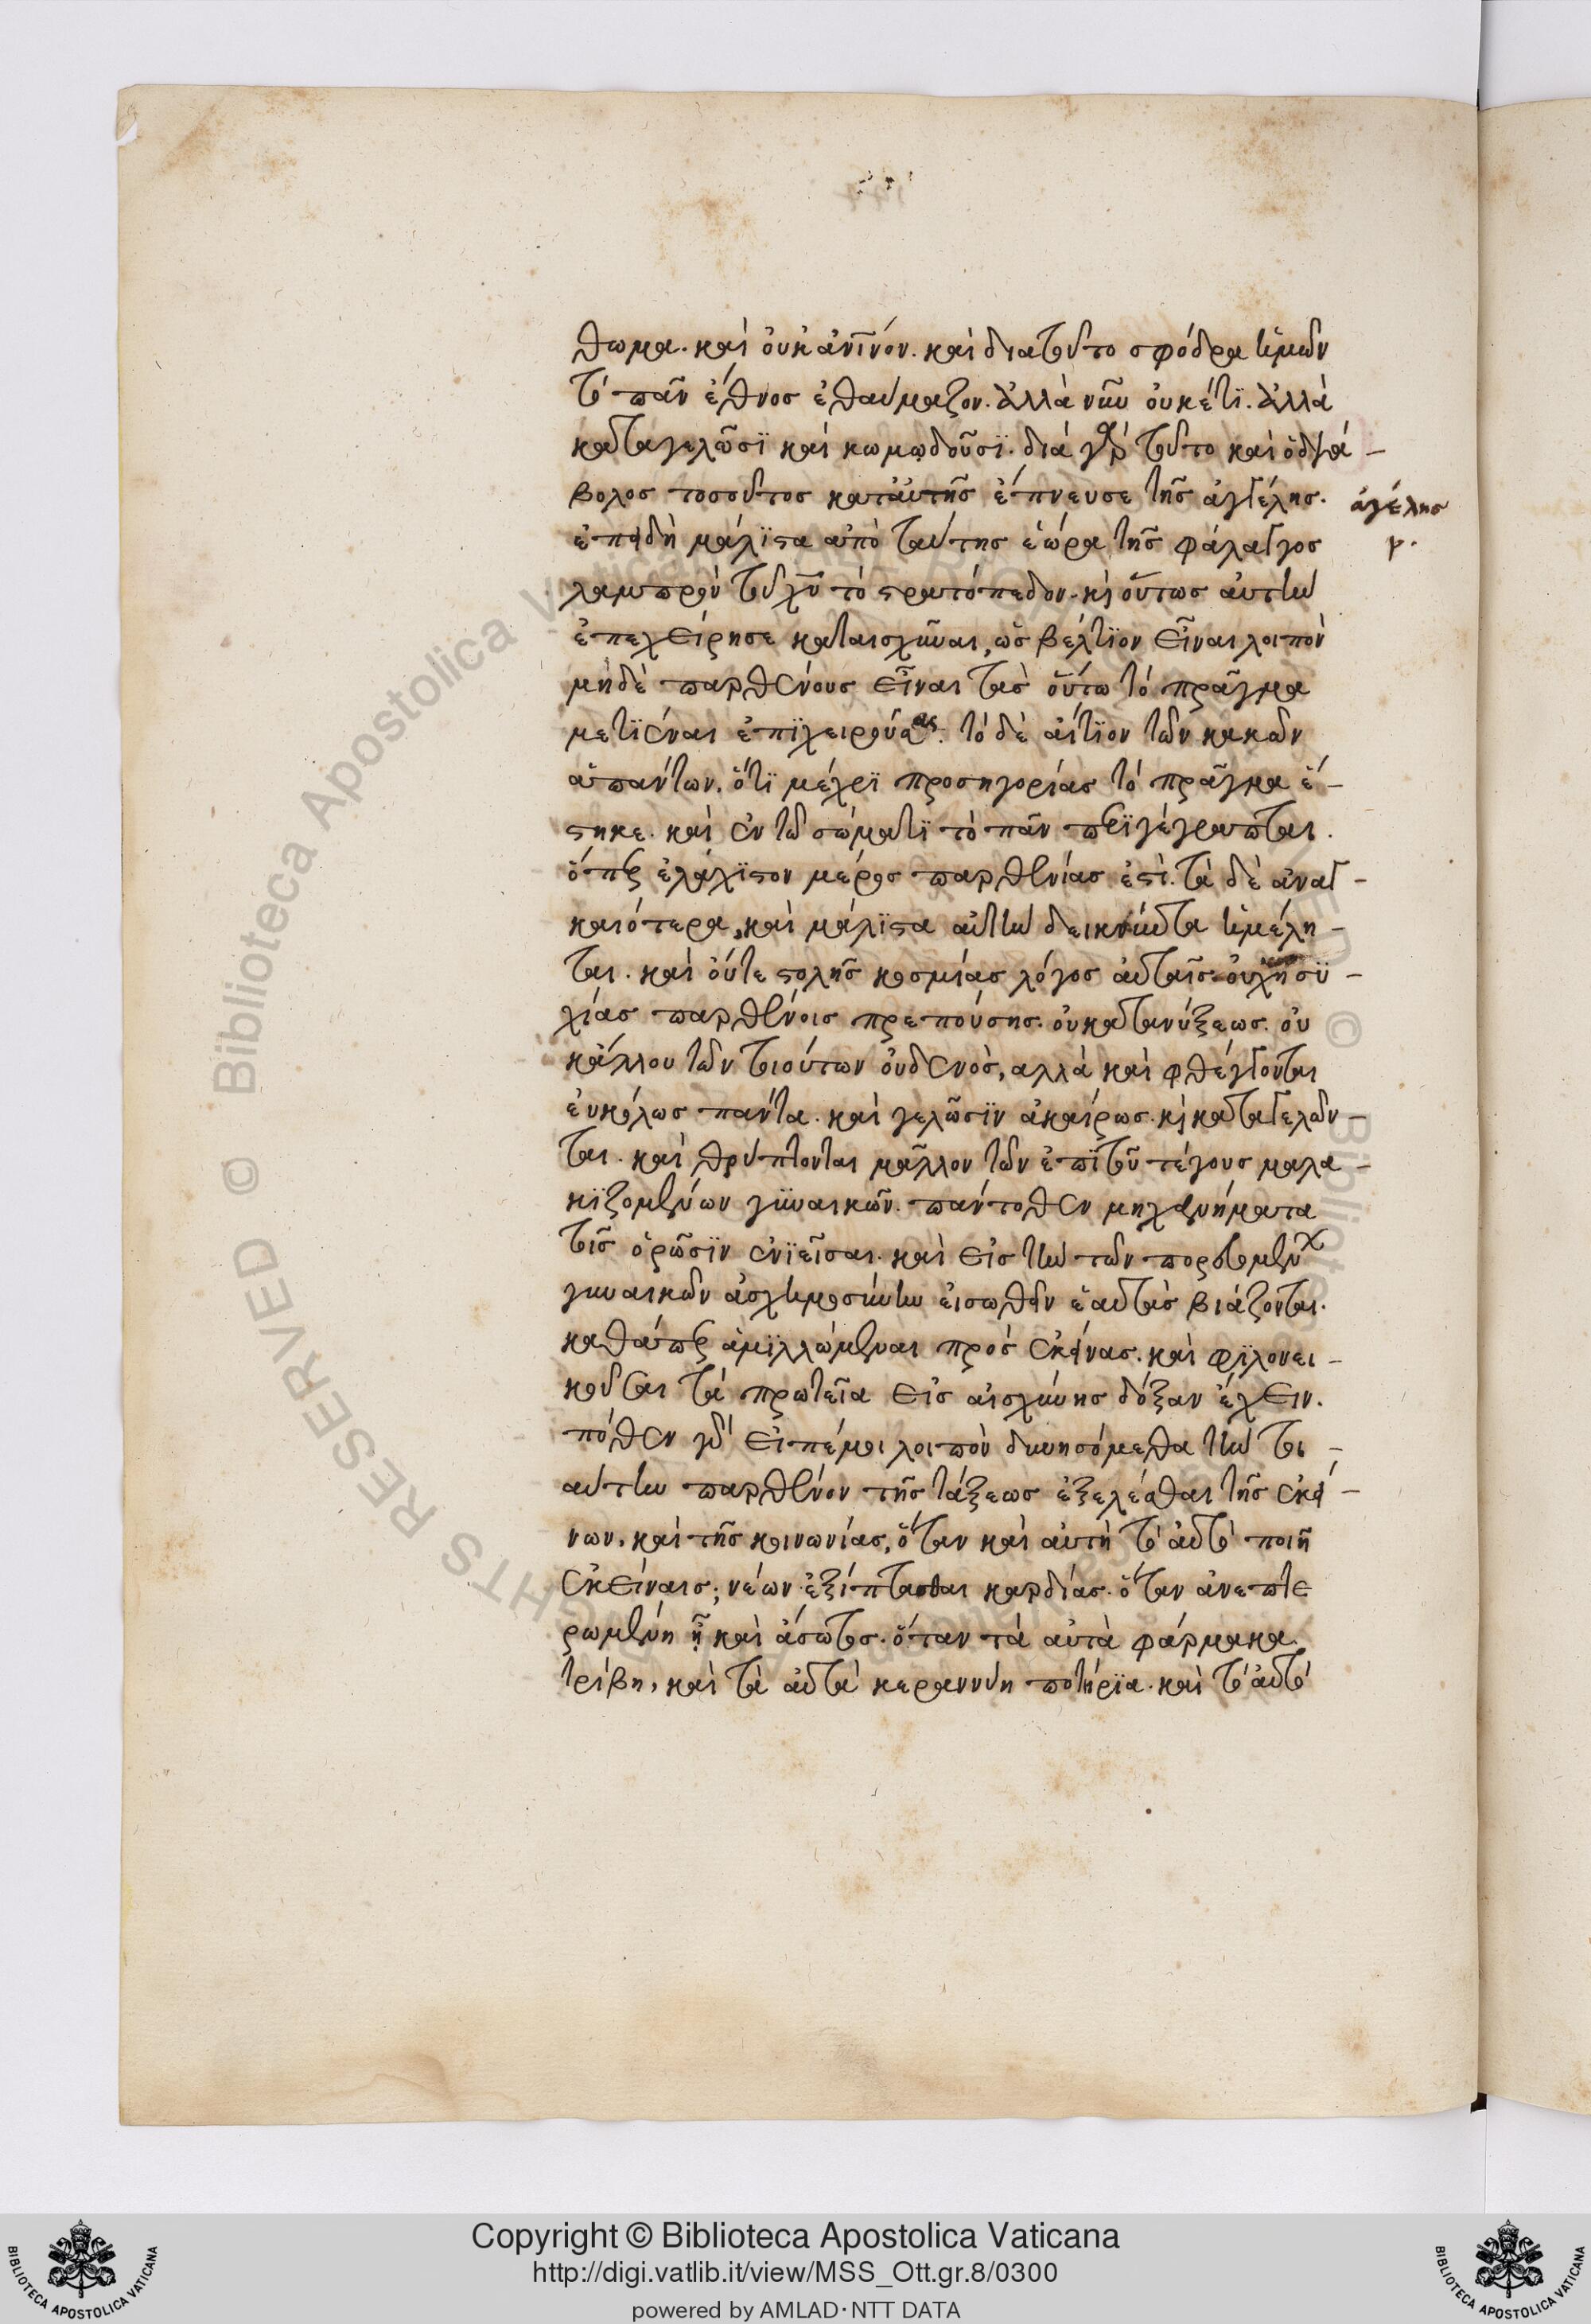 θωμα. καὶ οὐκ ἀνϊνόν. καὶ διατοῦτο σφόδρα ἡμῶν
τὸ πᾶν ἔθνος ἐθαύμαζον. ἀλλὰ νῦν οὐκέτϊ. ἀλλὰ
καταγελῶσϊ καὶ κωμῳδοῦσϊ. διά γὰρ τοῦτο καὶ ὁ διά-
βολος τοσοῦτος κατ᾽ αὐτῆς ἔπνευσε τῆς ἀγγέλης.
ἀγέλης
γρ.
ἐπειδὴ μάλϊστα ἀπὸ ταύτης ἑώρα τῆς φάλαγγος
λαμπρὸν τοῦ χ̅υ̅ τὸ στρατόπεδον. κ οὕτως αὐτὴν
ἐπεχείρησε καταισχῦναι, ὡς βέλτϊον εἶναι λοιπὸν
μηδὲ παρθένους εἶναι τὰς οὕτω τὸ πρᾶγμα
μετϊέναι ἐπϊχειρούσας. τὸ δὲ αἴτϊον τῶν κακῶν
ἁπάντων. ὅτϊ μέχρϊ προσηγορίας τὸ πρᾶγμα ἕ-
στηκε. καὶ ἐν τῶ σώματϊ τὸ πᾶν περϊγέγραπται.
ὅπερ ἐλάχϊστον μέρος παρθενίας ἐστί. τὰ δὲ ἀναγ-
καιότερα, καὶ μάλϊστα αὐτὴν δεικνύντα ἠμέλη-
ται. καὶ οὔτε στολῆς κοσμίας λόγος αὐταῖς οὐχ ἡσϋ-
χίας παρθένοις πρεπούσης. οὐ κατανύξεως. οὐ
κἄλλου τῶν τοιούτων οὐδενὸς, αλλὰ καὶ φθέγγονται
εὐκόλως πάντα. καὶ γελῶσϊν ἀκαίρως. κ καταγελῶν-
ται. καὶ θρύπτονται μᾶλλον τῶν ἐπϊ τοῦ τέγους μαλα-
κϊζομένων γϋναικῶν. πάντοθεν μηχανήματα
τοῖς ὁρῶσϊν ἐνϊεῖσαι. καὶ εἰς τὴν τῶν πορνευομέν
γυναικῶν ἀσχημοσύνην εἰσωθεῖν ἑαυτὰς βιάζονται.
καθάπερ ἁμϊλλώμεναι πρὸς ἐκείνας. καὶ φϊλονει-
κοῦσαι τὰ πρωτεῖα εἰς αἰσχύνης δόξαν ἔχειν.
πόθεν γοῦν εἰπέ μοι λοιπὸν δυνησόμεθα τὴν τοι-
αύτην παρθένον τῆς τάξεως ἐξελέσθαι τῆς ἐκεί-
νων. καὶ τῆς κοινωνίας, ὅταν καὶ αὐτὴ τὸ αὐτὸ ποιῆ
ἐκείναις; νέων ἐξίπτασθαι καρδίας. ὅταν ἀνεπτε
ρωμένη ᾖ καὶ ἄσωτος. ὅταν τὰ αὐτὰ φάρμακα
τρίβη, καὶ τὰ αὐτὰ κεραννύη ποτήρϊα. καὶ τὸ αὐτὸ
Copyright © Biblioteca Apostolica Vaticana
http://digi.vatlib.it/view/MSS_Ott.gr.8/0300
powered by AMLAD·NTT DATA